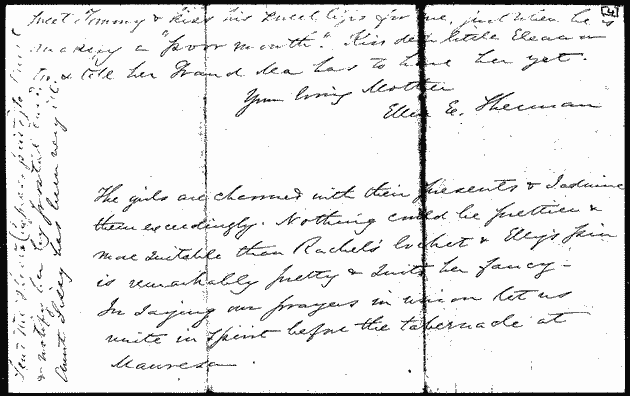 Sweet Tommy & kiss his sweet lips for me, just when he is
making a "poor mouth". Kiss dear little Eleanor
too & tell her Grand Ma has to have her yet.
Your loving Mother
Ellen E. Sherman
The girls are charmed with their presents & I admire
them exceedingly. Nothing could be prettier &
more suitable than Rachel's locket & Elly's pin
is remarkably pretty & suits her fancy -
In saying our prayers in union let us
unite in spirit before the tabernacle at
Manresa
Send the
& notify by postal card
Aunt Sissy has been very ill
4